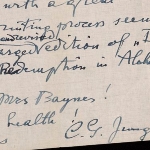 with a great
printing process seem
enlarged edition of „I
Redemption in Alch
Mrs Baynes!
health!
C.G. Jung